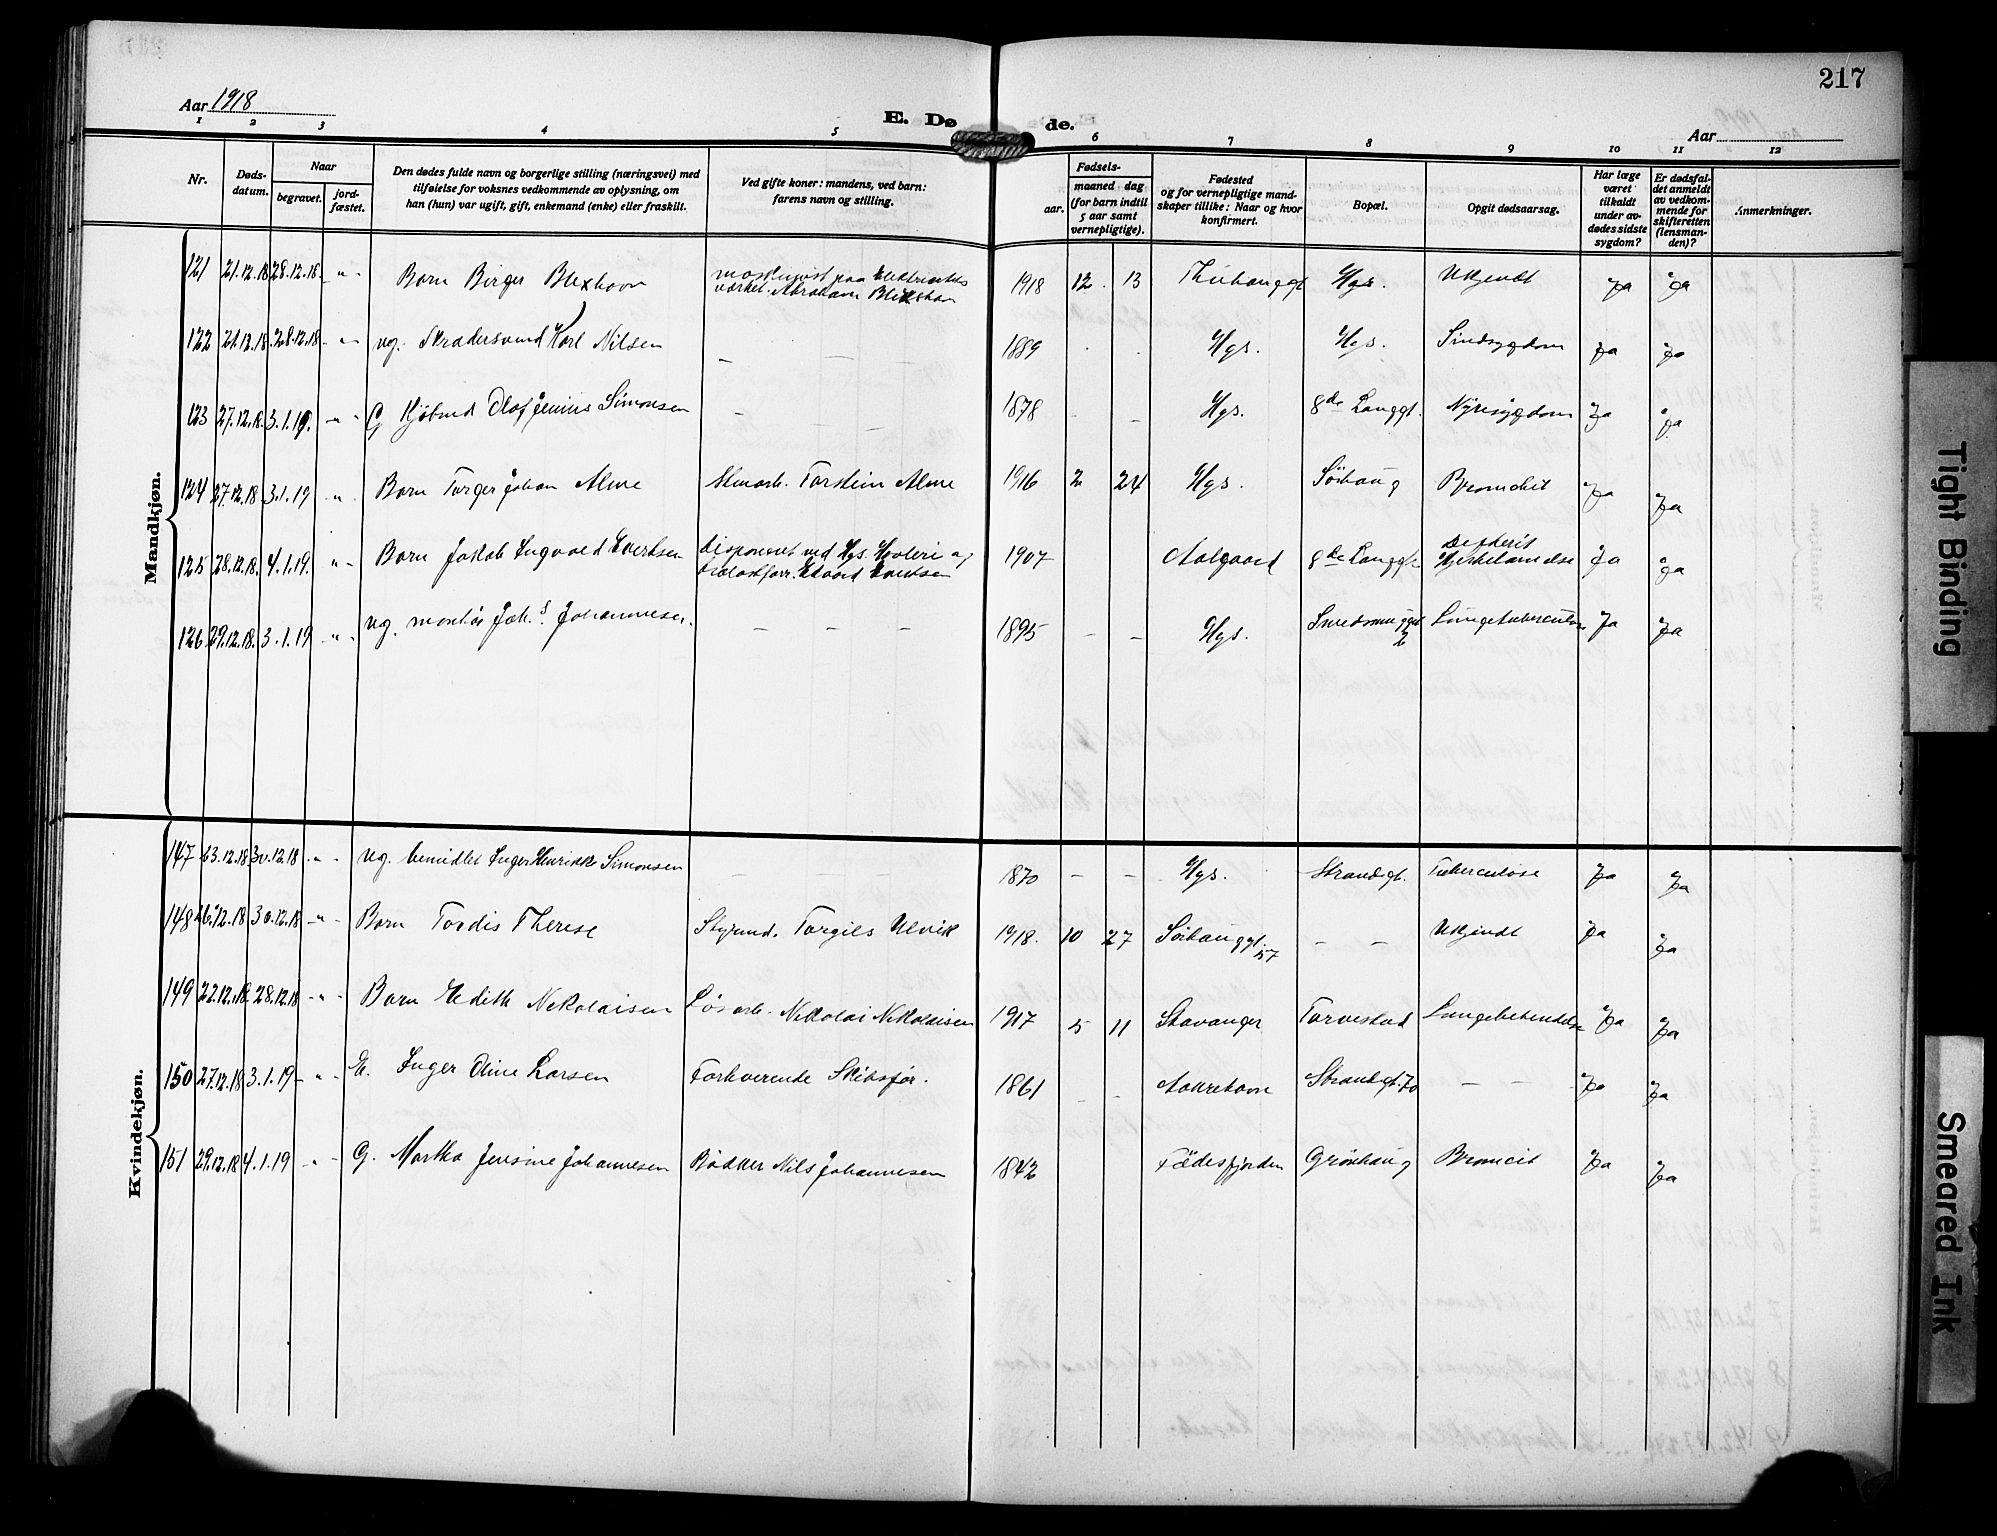 217
Aar 1918
E. Døde.
Aar
1 2 3 4 5 6 7 8 9 10 11 12
Nr.
Døds-datum.
Naar
begravet.
jord-fæstet.
Den dødes fulde navn og borgerlige stilling (næringsvei) med tilføielse for voksnes vedkommende av oplysning, om han (hun) var ugift, gift, enkemand (enke) eller fraskilt.
Ved gifte koner: mandens, ved barn: farens navn og stilling.
Fødsels-
aar.
maaned dag (for barn indtil 5 aar samt vernepligtige).
Fødested og for vernepligtige mandskaper tillike: Naar og hvor konfirmert.
Bopæl.
Opgit dødsaarsag.
Har læge været tilkaldt under avdødes sidste sygdom?
Er dødsfaldet anmeldt av vedkommende for skifteretten (lensmanden)?
Anmerkninger.
Mandkjøn.
121 21.12.18 28.12.18 - " - Barn Birger Blixhavn maskinist paa Elektricitets værket Abraham Blixhavn 1918 12 13 Hgs. Ukjendt Ja Ja
122 21.12.18 28.12.18 - " - ug. Skradersvend Karl Nilsen — 1889 Hgs. Hgs. Sindsygdom Ja Ja
123 27.12.18. 3.1.19. - " - G Kjøbmd Olaf Jenius Simonsen — 1878 Hgs. 8de Langgt. Nyresygdom Ja Ja
124 27.12.18. 3.1.19 - " - Barn Torger Johan Alme Torstein Alme 1916 2 24 Hgs. Sörhaug Bronchit Ja Ja
125 28.12.18. 4.1.19. - " - Barn Jakob Ingvald Evertsen disponent ved Hgs. Edvard Evertsen 1907 Aalgaard 8de Langgt. Ja Ja
126 29.12.18. 3.1.19 - " - ug. montør Joh.s Johannesen. — — — 1895 — — Hgs. Smedsmuggt 2 Lungetuberculose Ja Ja
Kvindekjøn.
147 23.12.18 30.12.18 - " - ug. bemidlet Inger Henrikke Simonsen — — 1870 — — Hgs. Strandgt. Tuberculose Ja Ja
148 26.12.18 30.12.18 - " - Barn Tordis Therese Styrmd. Torgils Ulvik 1918. 10 27 Sörhauggt. 57 — — Ukjendt Ja Ja
149 22.12.18. 28.12.18 - " - Barn Edith Nikolaisen Løsarb. Nikolai Nikolaisen 1917 5 11 Stavanger Torvestad Lungebetendelse Ja Ja
150 27.12.18 3.1.19 - " - E. Inger Oline Larsen Forhverende Skibsfør. 1861 Aakrehavn Strandgt. 70 — — Ja Ja
151 29.12.18 4.1.19 - " - G. Martha Jensine Johannesen Bødker Nils Johannesen 1842 Førdesfjorden Grönhaug Broncit Ja Ja
Tight Binding
Smeared Ink